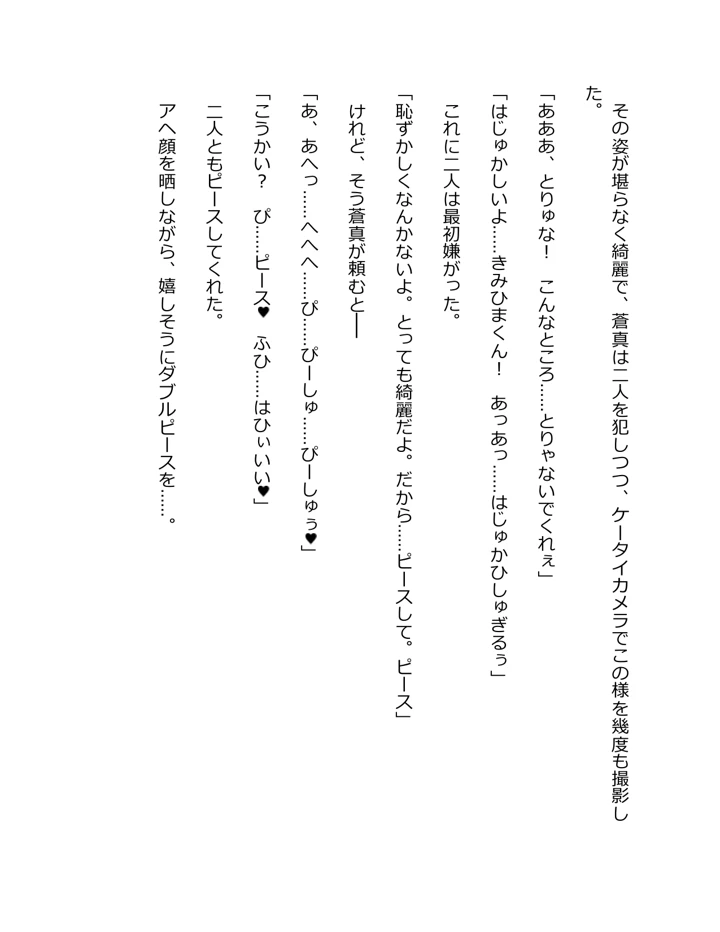 その姿が堪らなく綺麗で、蒼真は二人を犯しつつ、ケータイカメラでこの様を幾度も撮影し
た。
「あああ、とりゅな！　こんなところ……とりゃないでくれぇ」
「はじゅかしいよ……きみひまくん！　あっあっ……はじゅかひしゅぎるぅ」
　これに二人は最初嫌がった。
「恥ずかしくなんかないよ。とっても綺麗だよ。だから……ピースして。ピース」
　けれど、そう蒼真が頼むと――
「あ、あへっ……へへへ……ぴ……ぴーしゅ……ぴーしゅぅ♥」
「こうかい？　ぴ……ピース♥　ふひ……はひぃいい♥」
　二人ともピースしてくれた。
　アヘ顔を晒しながら、嬉しそうにダブルピースを……。